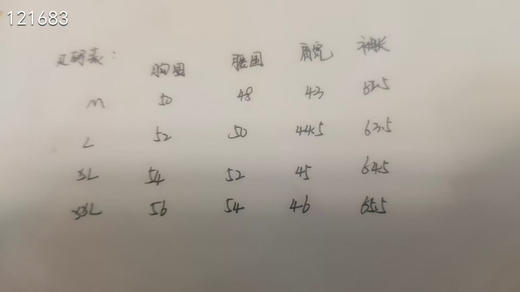 121683
尺码表:
胸围 腰围 肩宽 袖长
M 50 48 43
L 52 50 44.5 63.5
XL 54 52 45 64.5
XXL 56 54 46 65.5